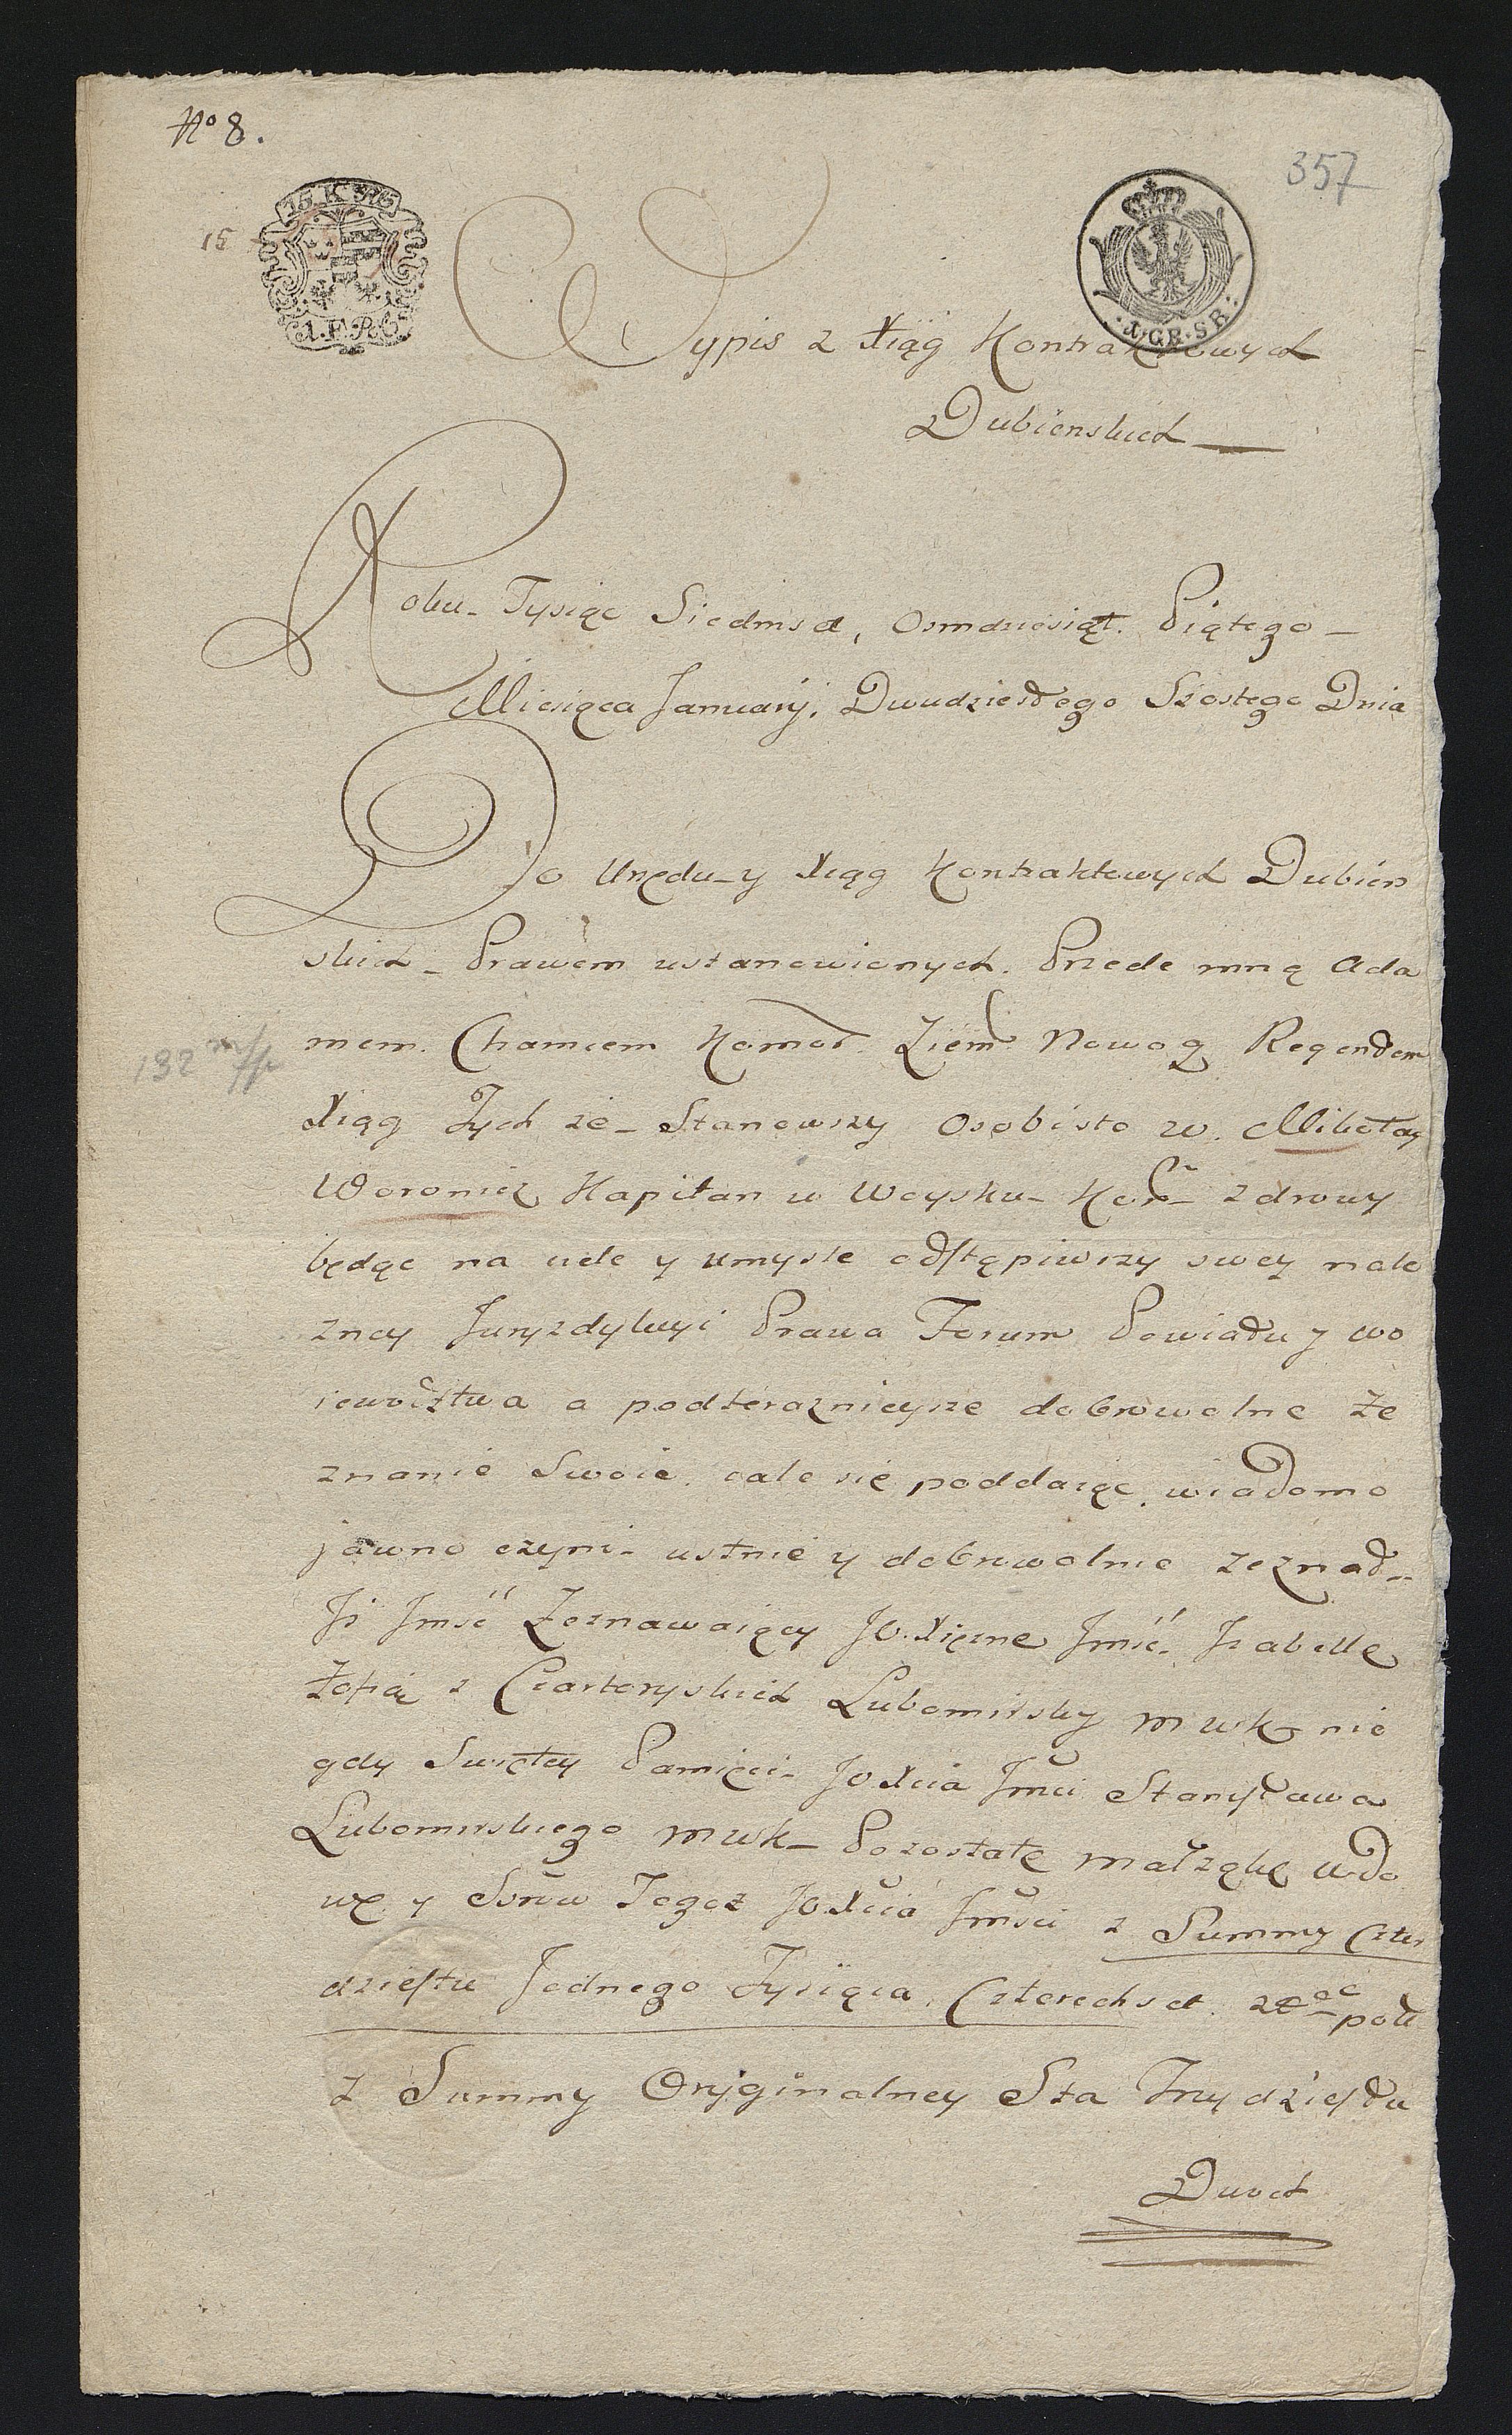 No 8.
357
15 K R
15
I.F.R.
I.GR.SR.
Wypis z Xiąg Kontraktowych
Dubienskich
Roku Tysiąc Siedmset, Osmdziesiąt Piątego
Miesiąca January, Dwudziestego Szostego Dnia
Do Urzędu y Xiąg Kontraktowych Dubien
skich Prawem ustanowionych. Przede mną Ada
mem Chamcem Komor. Ziem. Nowog. Regentem
132
Xiąg Tychże Stanowszy Osobiście W. Mikołay
Woronicz Kapitan w Woysku Kor. zdrowy
będąc na ciele y umysle odstąpiwszy swey nale
zney Juryzdykcyi Prawa Forum Powiatu y wo
iewodztwa a pod teraznieysze dobrowolne Ze
znanie Swoie cale się poddaiąc wiadomo
jawno czyni ustnie y dobrowolnie zeznał
Iż Imść Zeznawaiący JO. Xiężne Imść Izabellę
Zofię z Czartoryskich Lubomirską M W K nie
gdy Swiętey Pamięci JO Xcia Imci Stanisława
Lubomirskiego M W K Pozostałę Małżąkę Wdo
wę y Ssrow Tegoż JO Xcia Imści z Summy Czter
dziestu Jednego Tysiąca Czterechset. zł pol.
z Summy Oryginalney Sta Trzydziestu
Dwoch